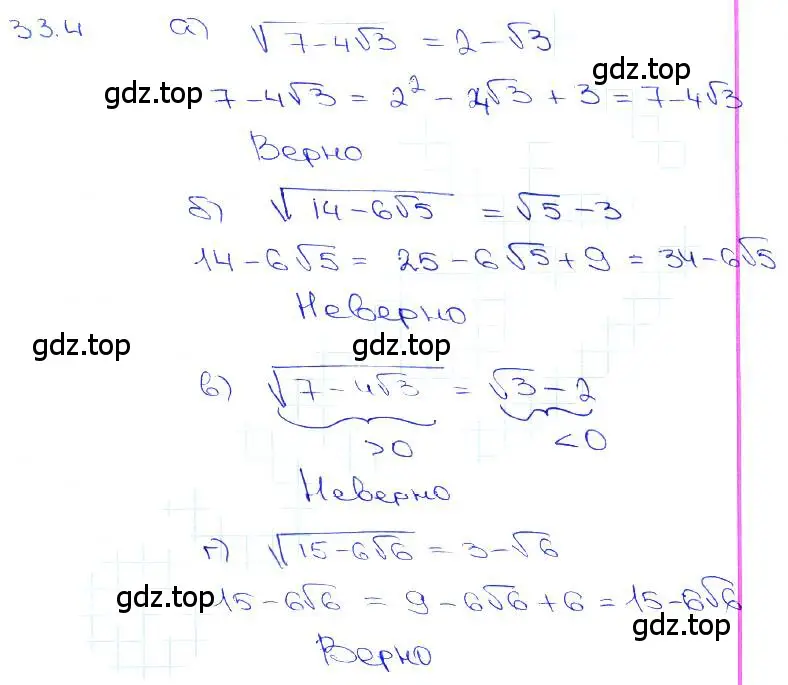 33.4 а) √(7-4√3) = 2-√3
gdz.top
gdz.top 7-4√3 = 2² - 4√3 + 3 = 7-4√3
Верно
б) √(14-6√5) = √5-3
14-6√5 = 25-6√5+9 = 34-6√5
Неверно
gdz.top gdz.top gdz.top
в) √(7-4√3) = √3-2
>0 <0
Неверно
г) √(15-6√6) = 3-√6
gdz.top 15-6√6 = 9-6√6+6 = 15-6√6
gdz.top
Верно